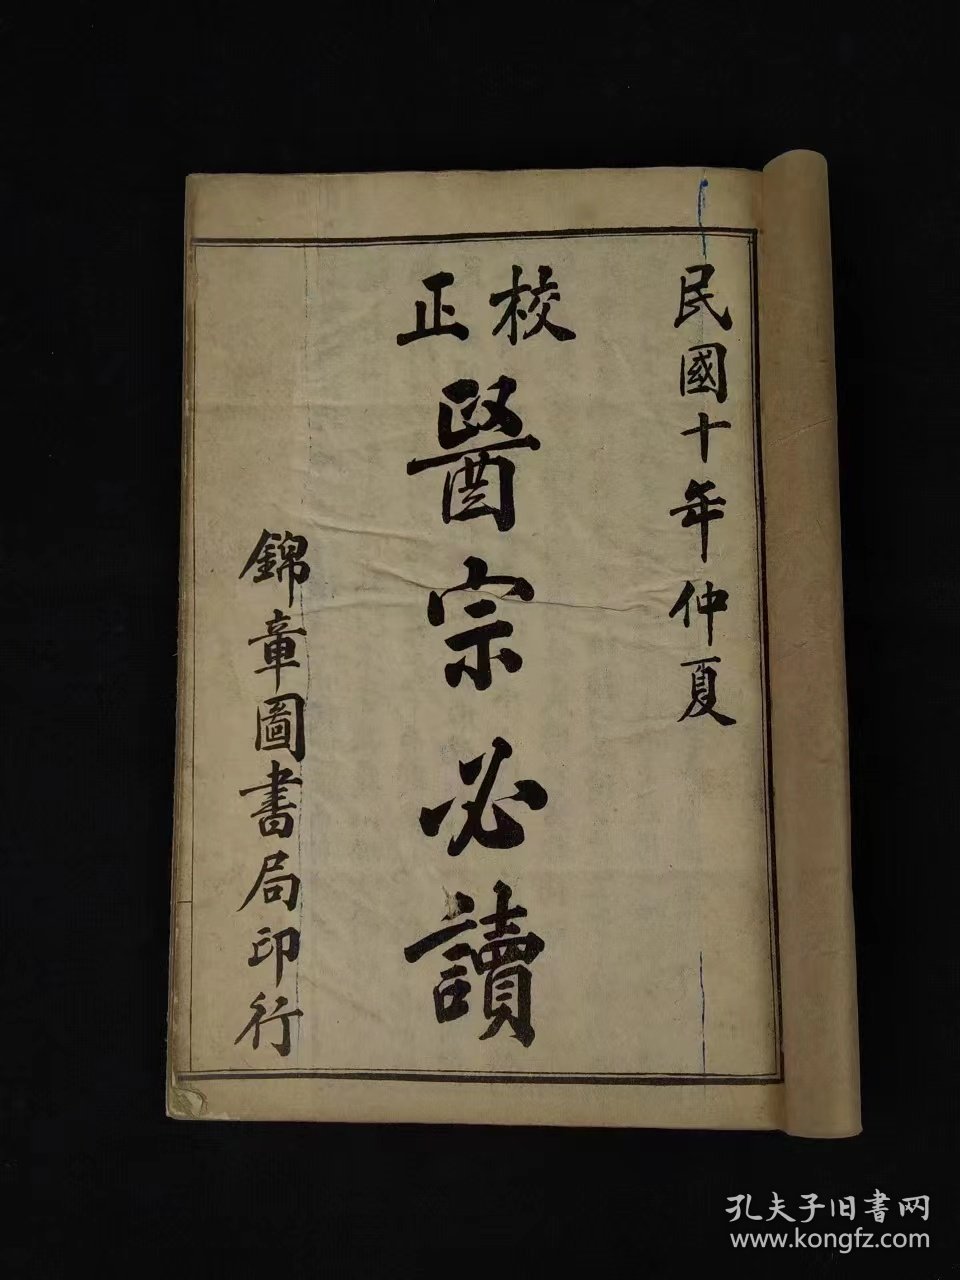 民國十年仲夏
校正
醫宗必讀
錦章圖書局印行
孔夫子旧書网
www.kongfz.com